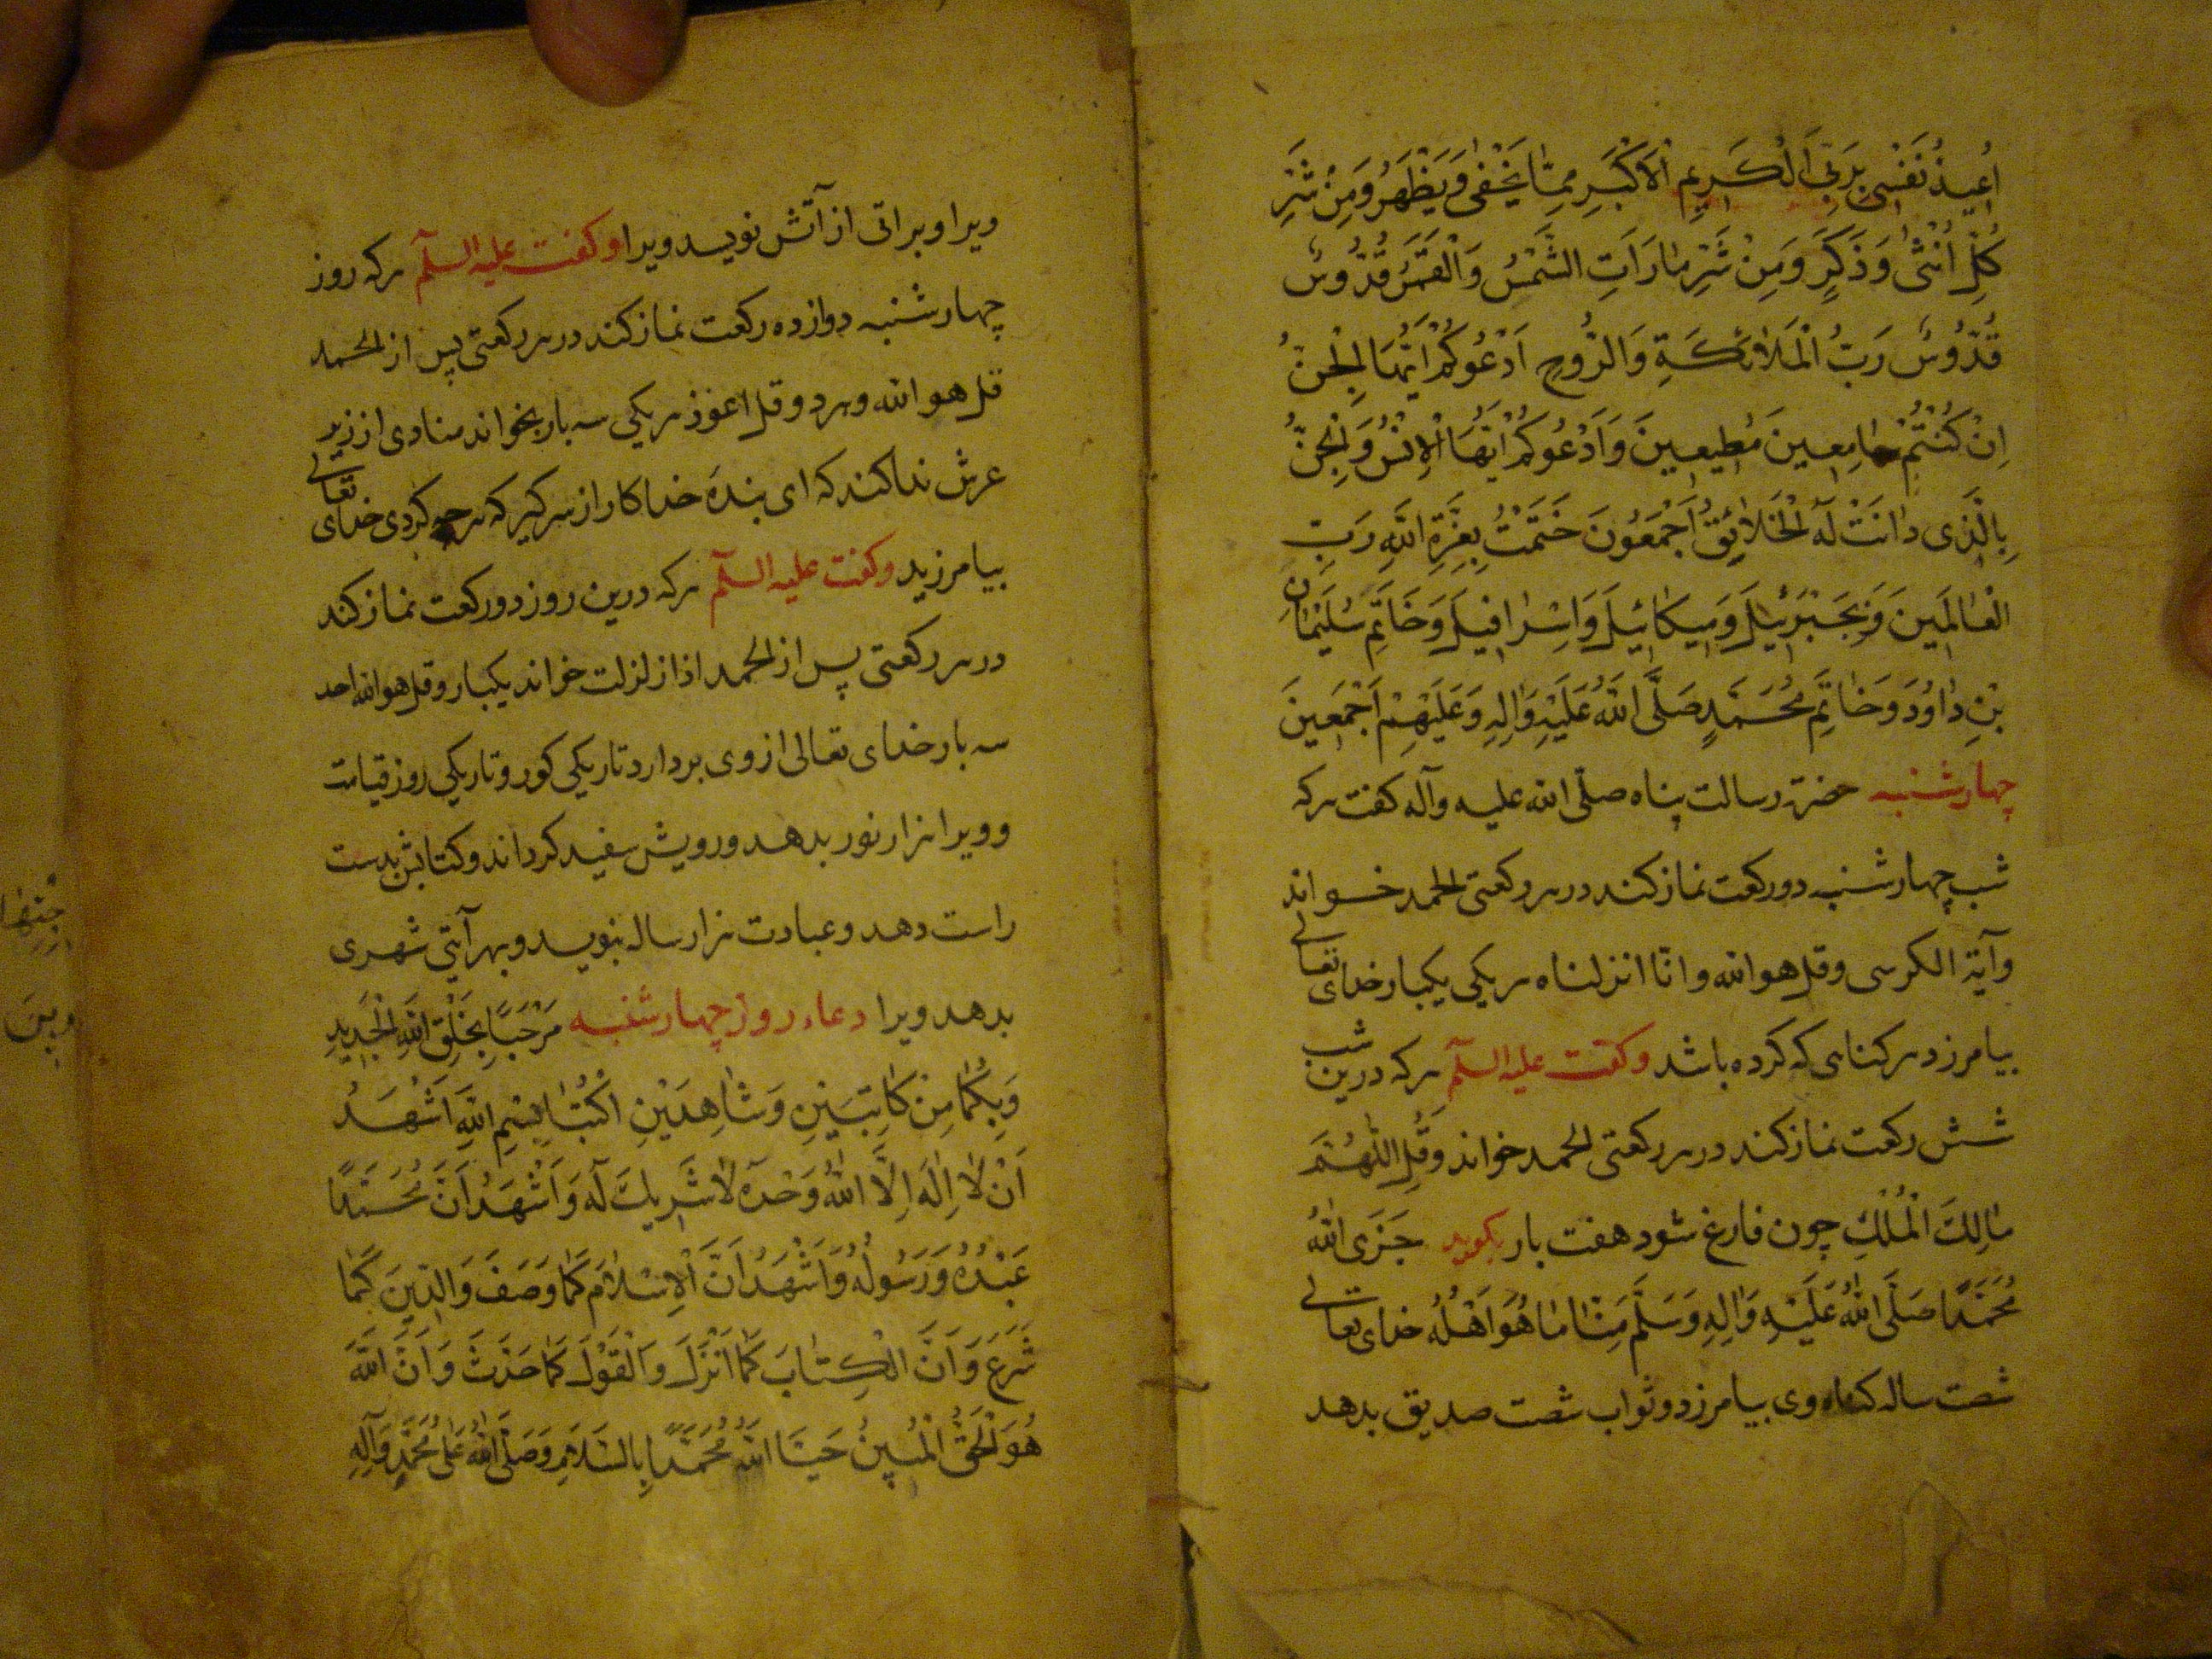 اُعِیذُ نَفْسِی بِرَبِّیَ الْکَرِیمِ الْاَکْبَرِ مِمّا یَخْفیٰ وَیَظْهَرُ وَمِنْ شَرِّ
کُلِّ اُنْثیٰ وَذَکَرٍ وَمِنْ شَرِّ مٰا رَاَتِ الشَّمْسُ وَالْقَمَرُ قُدُّوسٌ
قُدُّوسٌ رَبُّ الْمَلاٰئِکَةِ وَالرُّوحِ اَدْعُوکُمْ اَیُّهَا الْجِنُّ
اِنْ کُنْتُمْ سٰامِعِینَ مُطِیعِینَ وَاَدْعُوکُمْ اَیُّهَا الْاِنْسُ وَالْجِنُّ
بِالَّذِی دٰانَتْ لَهُ الْخَلاٰئِقُ اَجْمَعُونَ خَتَمْتُ بِعِزَّةِ اللّٰهِ رَبِّ
الْعٰالَمِینَ وَبِجَبْرَئِیلَ وَمِیکٰائِیلَ وَاِسْرٰافِیلَ وَخَاتَمِ سُلَیْمٰانَ
بْنِ دٰاوُدَ وَخٰاتَمِ مُحَمَّدٍ صَلَّی اللّٰهُ عَلَیْهِ وَاٰلِهِ وَعَلَیْهِمْ اَجْمَعِینَ
چهارشنبه حضرة رسالت پناه صلّی الله علیه وآله کفت هرکه
شب چهارشنبه دو رکعت نماز کند در هر رکعتی الحمد خواند
وآیة الکرسی وقل هو الله وانّا انزلناه هر یکی یکبار خدای تعالی
بیامرزد هر کناهی که کرده باشد وکفت علیه السلم هرکه درین شب
شش رکعت نماز کند در هر رکعتی الحمد خواند وقُلِ اللّٰهُمَّ
مٰالِکَ الْمُلْکِ چون فارغ شود هفت بار بکوید جَزَی اللّٰهُ
مُحَمَّدًا صَلَّی اللّٰهُ عَلَیْهِ وَاٰلِهِ وَسَلَّمَ مِنّٰا مٰا هُوَ اَهْلُهُ خدای تعالی
شصت ساله کناه وی بیامرزد وثواب شصت صدیق بدهد
ویرا وبراتی از آتش نویسد ویرا وکفت علیه السلم هرکه روز
چهارشنبه دوازده رکعت نماز کند در هر رکعتی پس از الحمد
قل هو الله وهر دو قل اعوذ هر یکی سه بار بخواند منادی از زیر
عرش ندا کند که ای بندهٔ خدا کار از سر کیر که هر چه کردی خدای تعالی
بیامرزید وکفت علیه السلم هرکه درین روز دو رکعت نماز کند
در هر رکعتی پس از الحمد اذا زلزلت خواند یکبار وقل هو الله احد
سه بار خدای تعالی از وی بردارد تاریکی کور وتاریکی روز قیامت
وویرا هزار نور بدهد ورویش سفید کرداند وکتابش بدست
راست دهد وعبادت هزار ساله بنویسد وبهر آیتی شهری
بدهد ویرا دعاء روز چهارشنبه مَرْحَبًا بِخَلْقِ اللّٰهِ الْجَدِیدِ
وَبِکُمٰا مِنْ کٰاتِبَیْنِ وَشٰاهِدَیْنِ اکْتُبٰا بِسْمِ اللّٰهِ اَشْهَدُ
اَنْ لاٰ اِلٰهَ اِلَّا اللّٰهُ وَحْدَهُ لاٰ شَرِیكَ لَهُ وَاَشْهَدُ اَنَّ مُحَمَّدًا
عَبْدُهُ وَرَسُولُهُ وَاَشْهَدُ اَنَّ الْاِسْلاٰمَ کَمٰا وَصَفَ وَالدِّینَ کَمٰا
شَرَعَ وَاَنَّ الْکِتٰابَ کَمٰا اَنْزَلَ وَالْقَوْلَ کَمٰا حَدَّثَ وَاَنَّ اللّٰهَ
هُوَ الْحَقُّ الْمُبِینُ حَیَّا اللّٰهُ مُحَمَّدًا بِالسَّلاٰمِ وَصَلَّی اللّٰهُ عَلیٰ مُحَمَّدٍ وَآلِهِ